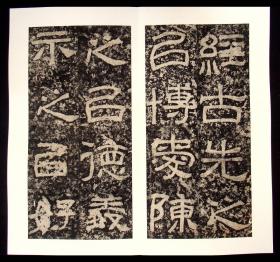 經古先之
㠯博愛陳
之㠯德義
示之㠯好